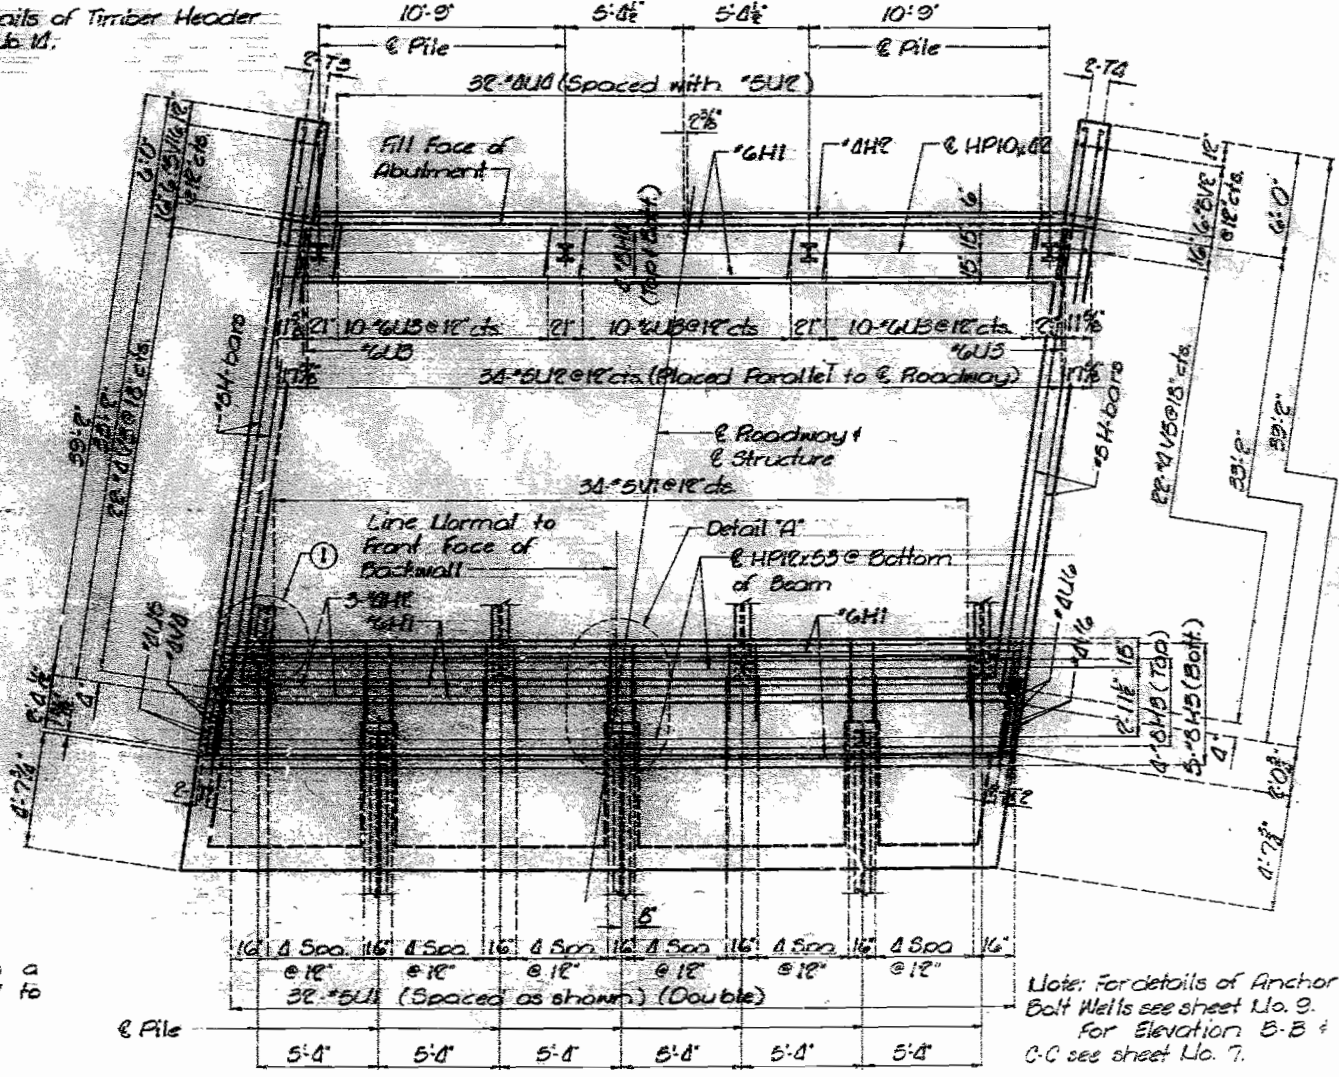 ails of Timber Header
10'-9" 5'-4½" 5'-4½" 10'-9"
℄ Pile ℄ Pile
2-T3 2-T4
32-#4U4 (Spaced with #5U2)
Fill Face of
Abutment
#6H1 #4H2 ℄ HP10x42
6'-0" 12"
@12" cts.
6'-0" 12"
@12" cts.
6"
15" 15"
(Top & Bott.)
21" 10-#6U3@12"cts. 21" 10-#6U3@12"cts. 21" 10-#6U3@12"cts.
#6U3 #6U3
34-#5U2@12"cts. (Placed Parallel to ℄ Roadway)
#5H-bars #5H-bars
39'-2"
33'-2"
22-#4V5@18"cts.
22-#4V5@18"cts.
33'-2"
39'-2"
℄ Roadway &
℄ Structure
34-#5V1@12"cts.
Line Normal to
Front Face of
Backwall
Detail "A"
℄ HP12x53 @ Bottom
of Beam
1
3-#4H2
#6H1 #6H1
#4U6
2'-11½" 15"
4-#8H3 (Top)
5-#8H3 (Bott.)
4" 4"
4'-7¾" 4'-7¾"
8"
16" 4 Spa. 16" 4 Spa. 16" 4 Spa. 16" 4 Spa. 16" 4 Spa. 16" 4 Spa. 16"
@12" @12" @12" @12" @12" @12"
32-#5U1 (Spaced as shown) (Double)
a
to
℄ Pile
5'-4" 5'-4" 5'-4" 5'-4" 5'-4" 5'-4"
Note: For details of Anchor
Bolt Wells see sheet No. 9.
For Elevation B-B &
C-C see sheet No. 7.